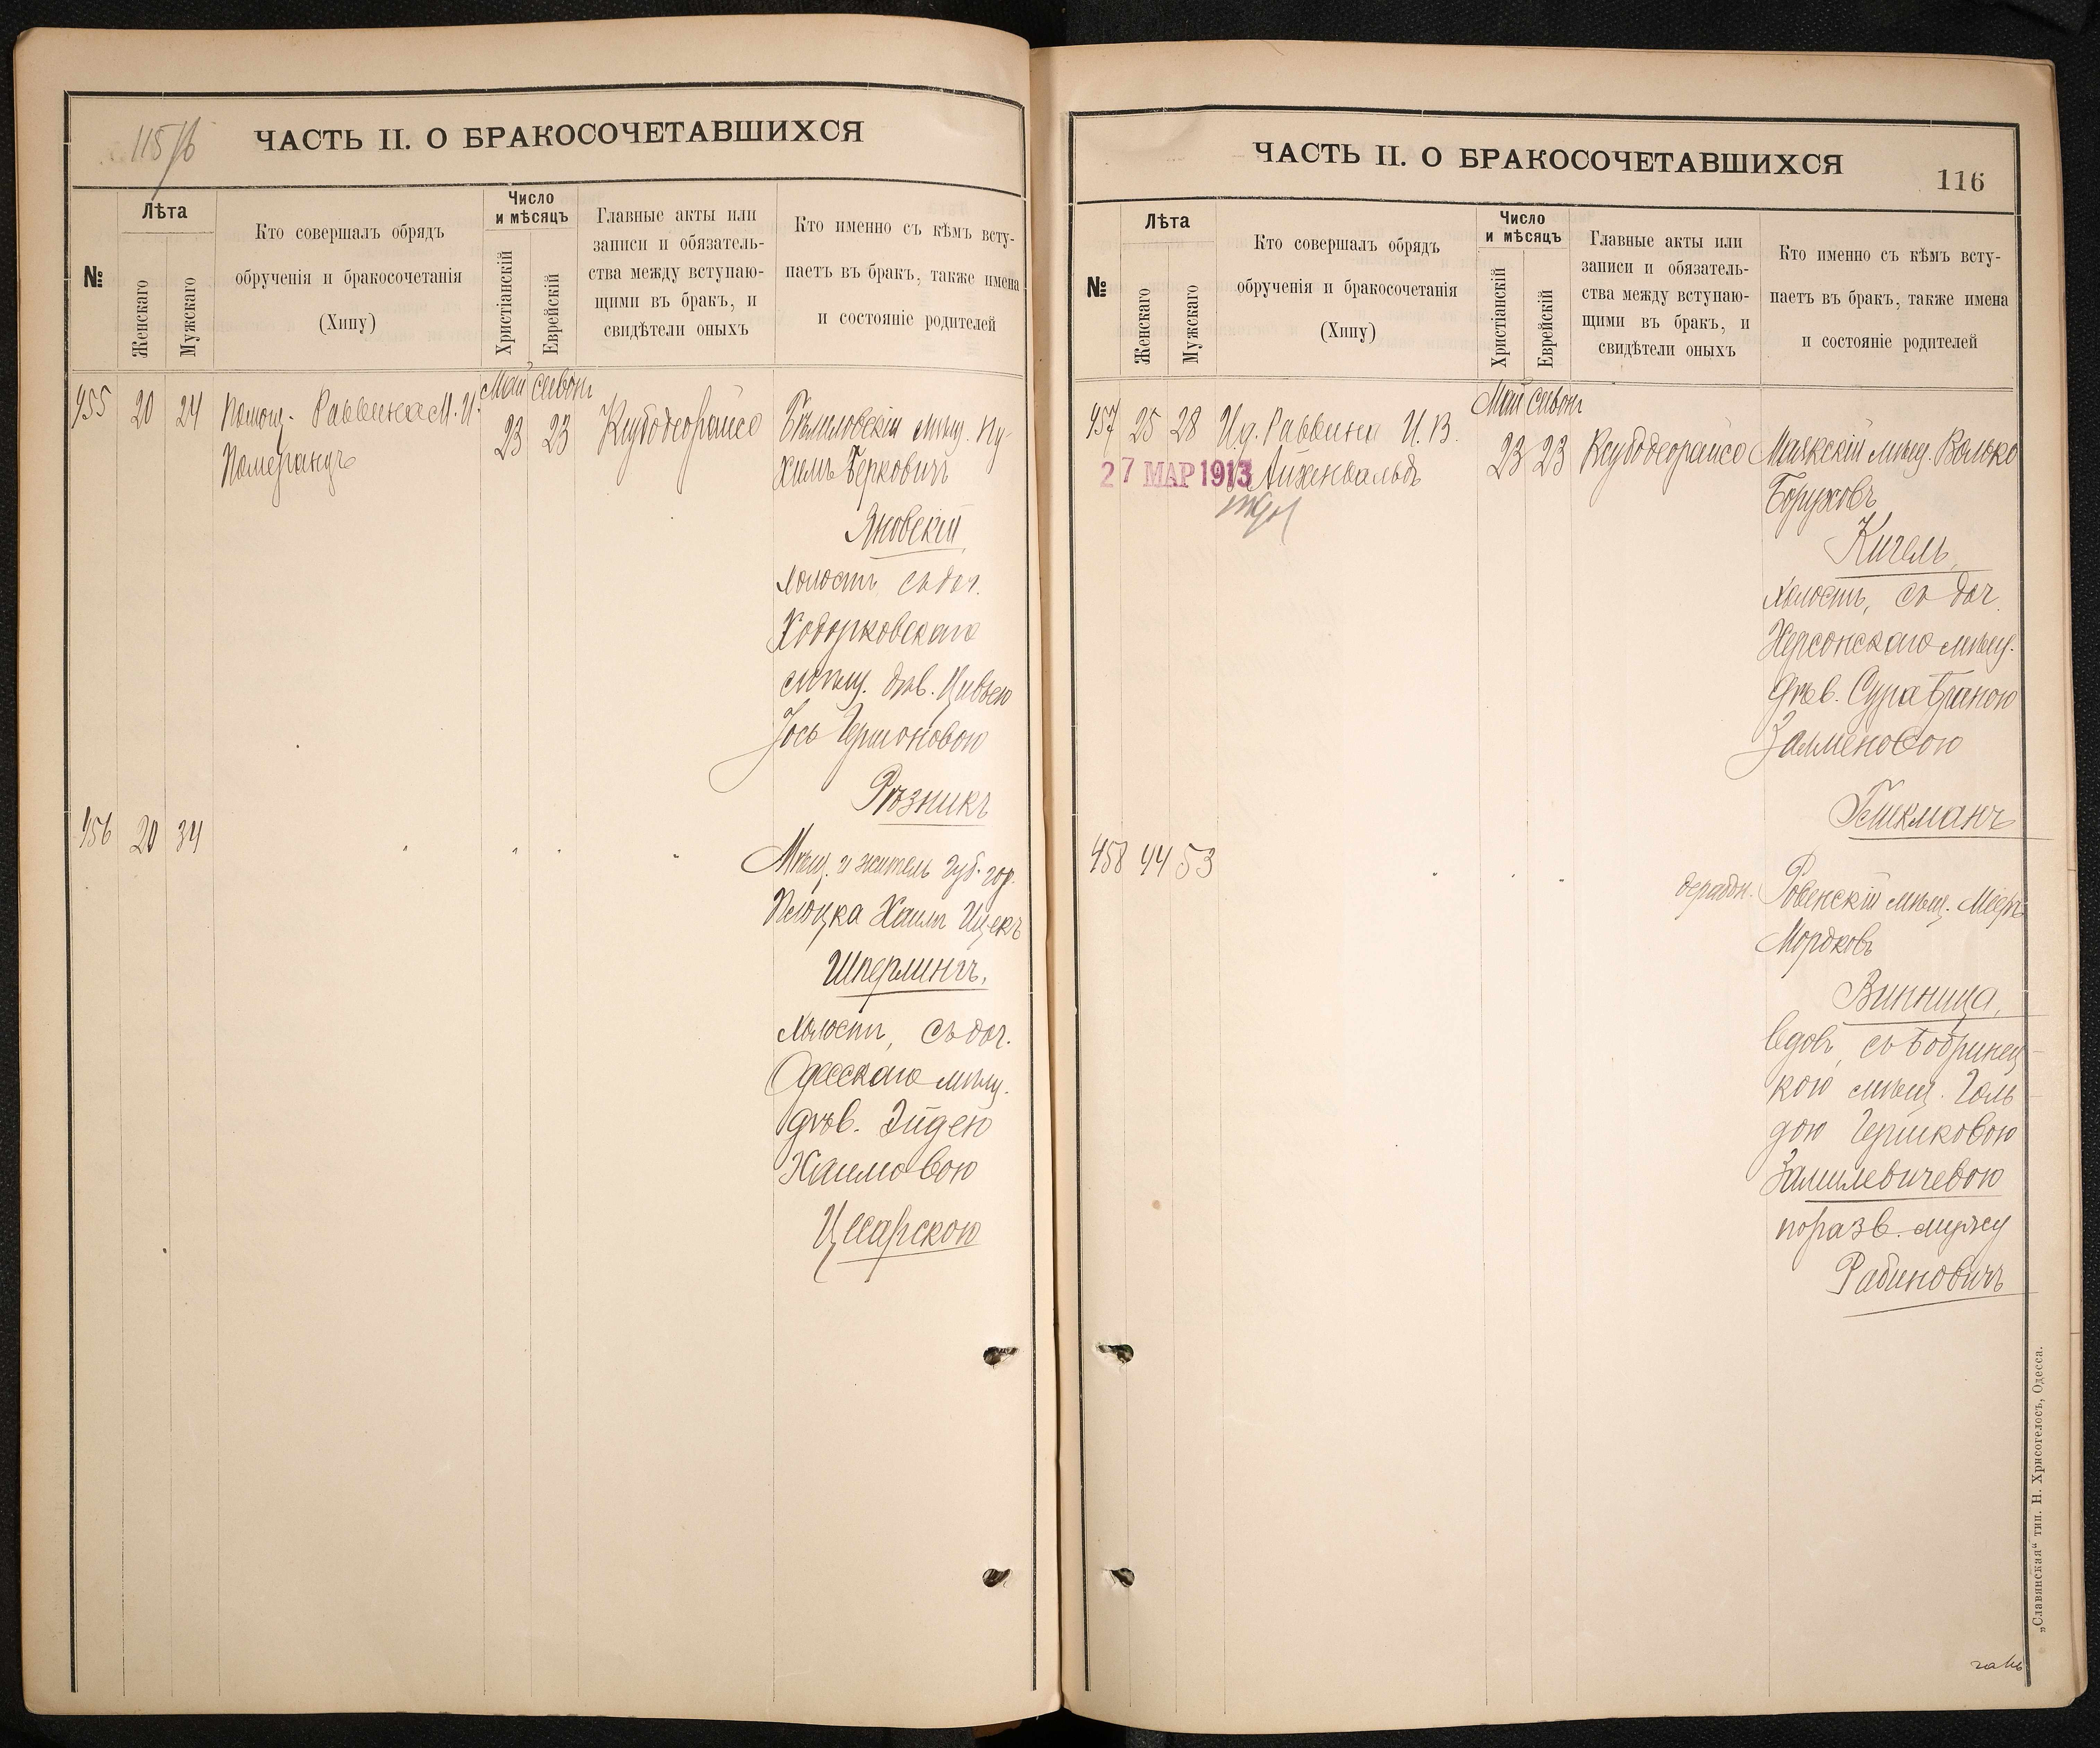 115/б
ЧАСТЬ II. О БРАКОСОЧЕТАВШИХСЯ
№
Лѣта
Женскаго
Мужскаго
Кто совершалъ обрядъ
обрученія и бракосочетанія
(Хипу)
Число
и мѣсяцъ
Христіанскій
Еврейскій
Главные акты или
записи и обязатель-
ства между вступаю-
щими въ бракъ, и
свидѣтели оныхъ
Кто именно съ кѣмъ всту-
паетъ въ бракъ, также имена
и состояніе родителей
Май Сивонъ
455 20 24 Помощ. Раввина М. И. 23 23 Ксубодеорайсо
Померанцъ
мѣщ. Ну-
химъ Берковичъ
Яновскій,
холостъ, съ доч.
Ходорковскаго
мѣщ. дѣв. Цивьею
Іось Гершоновою
Рѣзникъ
456 20 34 " " " "
Мѣщ. и житель губ. гор.
Плоцка Хаимъ Ицекъ
Шперлингъ,
холостъ, съ доч.
Одесскаго мѣщ.
дѣв. Эйдею
Хаимовою
Цесарскою
ЧАСТЬ II. О БРАКОСОЧЕТАВШИХСЯ
116
№
Лѣта
Женскаго
Мужскаго
Кто совершалъ обрядъ
обрученія и бракосочетанія
(Хипу)
Число
и мѣсяцъ
Христіанскій
Еврейскій
Главные акты или
записи и обязатель-
ства между вступаю-
щими въ бракъ, и
свидѣтели оныхъ
Кто именно съ кѣмъ всту-
паетъ въ бракъ, также имена
и состояніе родителей
Май Сивонъ
457 25 28 И.д. Раввина И. В. 23 23 Ксубодеорайсо
Айхенвальдъ
27 МАР 1913
Маякскій мѣщ. Волько
Боруховъ
Кигель,
холостъ, съ доч.
Херсонскаго мѣщ.
дѣв. Сура Браною
Залменовою
Гликманъ
458 44 53 " " "
Ровенскій мѣщ. Мееръ
Мордковъ
Винница,
вдовъ, съ Бобринец-
кою мѣщ. Голь-
дою Гершковою
Замилевичевою
по разв. мужу
Рабиновичъ
„Славянская“ тип. Н. Хрисогелосъ, Одесса.